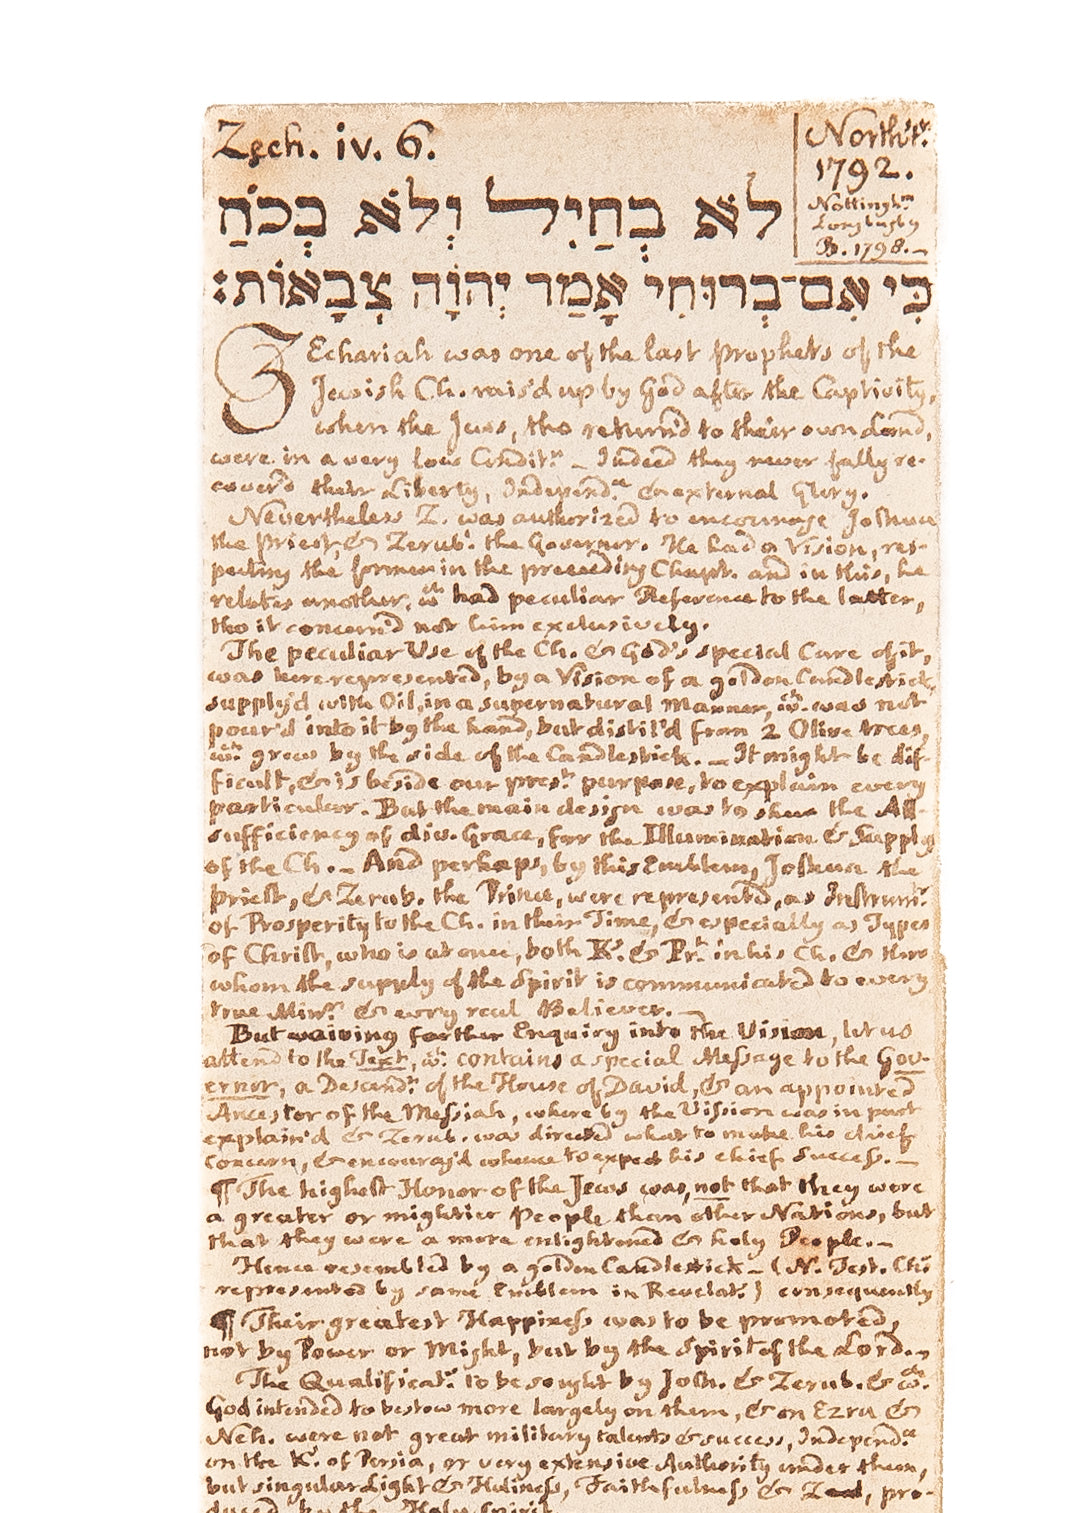 Zech. iv. 6.
North'n.
1792.
Nottingh.m
Longbugby
B. 1798.-
לֹא בְחַיִל וְלֹא בְכֹחַ
כִּי אִם־בְּרוּחִי אָמַר יְהוָֹה צְבָאוֹת׃
Zechariah was one of the last Prophets of the
Jewish Ch. rais'd up by God after the Captivity,
when the Jews, tho return'd to their own Land,
were in a very low Condit.n - Indeed they never fully re-
cover'd their Liberty, Independ.ce & external Glory.
Nevertheless Z. was authorized to encourage Joshua
the Priest, & Zerub.l the Governor. He had a Vision, res-
pecting the former in the preceeding Chapt. and in this, he
relates another, w.ch had peculiar Reference to the latter,
tho it concern'd not him exclusively.
The peculiar Use of the Ch. & God's special Care of it,
was here represented, by a Vision of a golden Candlestick,
supply'd with Oil, in a supernatural Manner, w.ch was not
pour'd into it by the hand, but distil'd from 2 Olive trees,
w.ch grew by the side of the Candlestick. - It might be dif-
ficult, & is beside our pres.t purpose, to explain every
particular. But the main design was to shew the All-
sufficiency of div. Grace, for the Illumination & Supply
of the Ch. - And perhaps, by this Emblem, Joshua the
Priest, & Zerub. the Prince, were represented, as Instrum.ts
of Prosperity to the Ch. in their Time, & especially as Types
of Christ, who is at once, both K. & Pr.t in his Ch. & thro
whom the supply of the Spirit is communicated to every
true Min.r & every real Believer. -
But waiving farther Enquiry into the Vision, let us
attend to the Text, w.ch contains a special Message to the Gov-
ernor, a Descend.t of the House of David, & an appointed
Ancestor of the Messiah, where by the Vission was in part
explain'd & Zerub. was directed what to make his chief
Concern, & encourag'd whence to expect his chief Success. -
¶ The highest Honor of the Jews was, not that they were
a greater or mightier People than other Nations, but
that they were a more enlightened & holy People. -
Hence resembled by a golden Candlestick - (N. Test. Ch.s
represented by same Emblem in Revelat.n) consequently
¶ Their greatest Happiness was to be promoted,
not by Power or Might, but by the Spirit of the Lord. -
The Qualificat.n to be sought by Josh. & Zerub. & w.ch
God intended to bestow more largely on them, & on Ezra &
Neh. were not great military talents & success, Independ.ce
on the K. of Persia, or very extensive Authority under them,
but singular Light & Holiness, Faithfulness & Zeal, pro-
duced by the Holy Spirit.